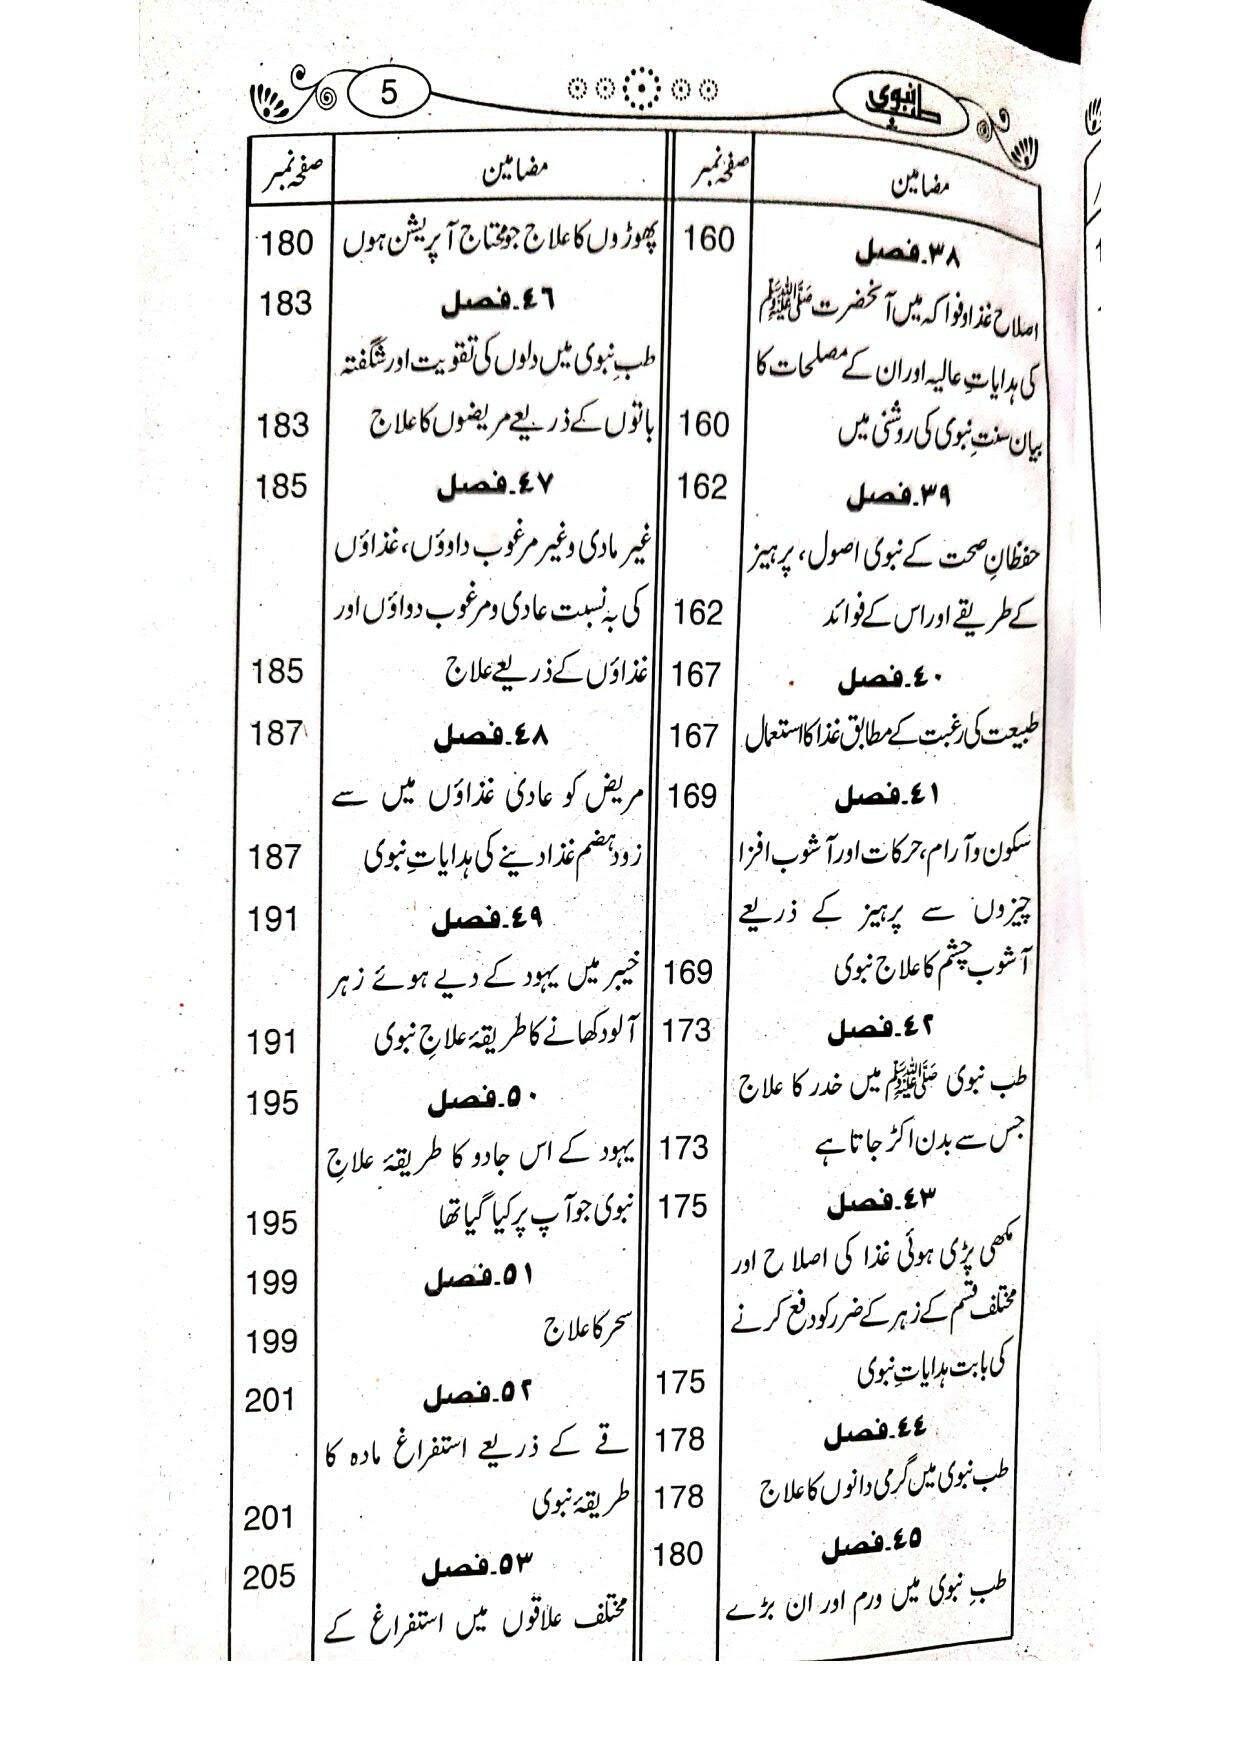 5
طب نبوی
مضامین صفحہ نمبر
۳۸۔فصل 160
اصلاح غذا و فواکہ میں آنحضرت ﷺ
کی ہدایاتِ عالیہ اور ان کے مصلحات کا
بیان سنتِ نبوی کی روشنی میں 160
۳۹۔فصل 162
حفظانِ صحت کے نبوی اصول، پرہیز
کے طریقے اور اس کے فوائد 162
٤۰۔فصل 167
طبیعت کی رغبت کے مطابق غذا کا استعمال 167
٤۱۔فصل 169
سکون و آرام، حرکات اور آشوب افزا
چیزوں سے پرہیز کے ذریعے
آشوب چشم کا علاج نبوی 169
٤۲۔فصل 173
طب نبوی ﷺ میں خدر کا علاج
جس سے بدن اکڑ جاتا ہے 173
٤۳۔فصل 175
مکھی پڑی ہوئی غذا کی اصلاح اور
مختلف قسم کے زہر کے ضرر کو دفع کرنے
کی بابت ہدایاتِ نبوی 175
٤٤۔فصل 178
طب نبوی میں گرمی دانوں کا علاج 178
٤٥۔فصل 180
طبِ نبوی میں ورم اور ان بڑے
مضامین صفحہ نمبر
پھوڑوں کا علاج جو محتاج آپریشن ہوں 180
٤٦۔فصل 183
طبِ نبوی میں دلوں کی تقویت اور شگفتہ
باتوں کے ذریعے مریضوں کا علاج 183
٤۷۔فصل 185
غیر مادی وغیر مرغوب داوؤں، غذاؤں
کی بہ نسبت عادی و مرغوب دواؤں اور
غذاؤں کے ذریعے علاج 185
٤۸۔فصل 187
مریض کو عادی غذاؤں میں سے
زود ہضم غذا دینے کی ہدایاتِ نبوی 187
٤۹۔فصل 191
خیبر میں یہود کے دیے ہوئے زہر
آلود کھانے کا طریقۂ علاجِ نبوی 191
٥۰۔فصل 195
یہود کے اس جادو کا طریقۂ علاجِ
نبوی جو آپ پر کیا گیا تھا 195
٥۱۔فصل 199
سحر کا علاج 199
٥۲۔فصل 201
قے کے ذریعے استفراغ مادہ کا
طریقۂ نبوی 201
٥۳۔فصل 205
مختلف علاقوں میں استفراغ کے